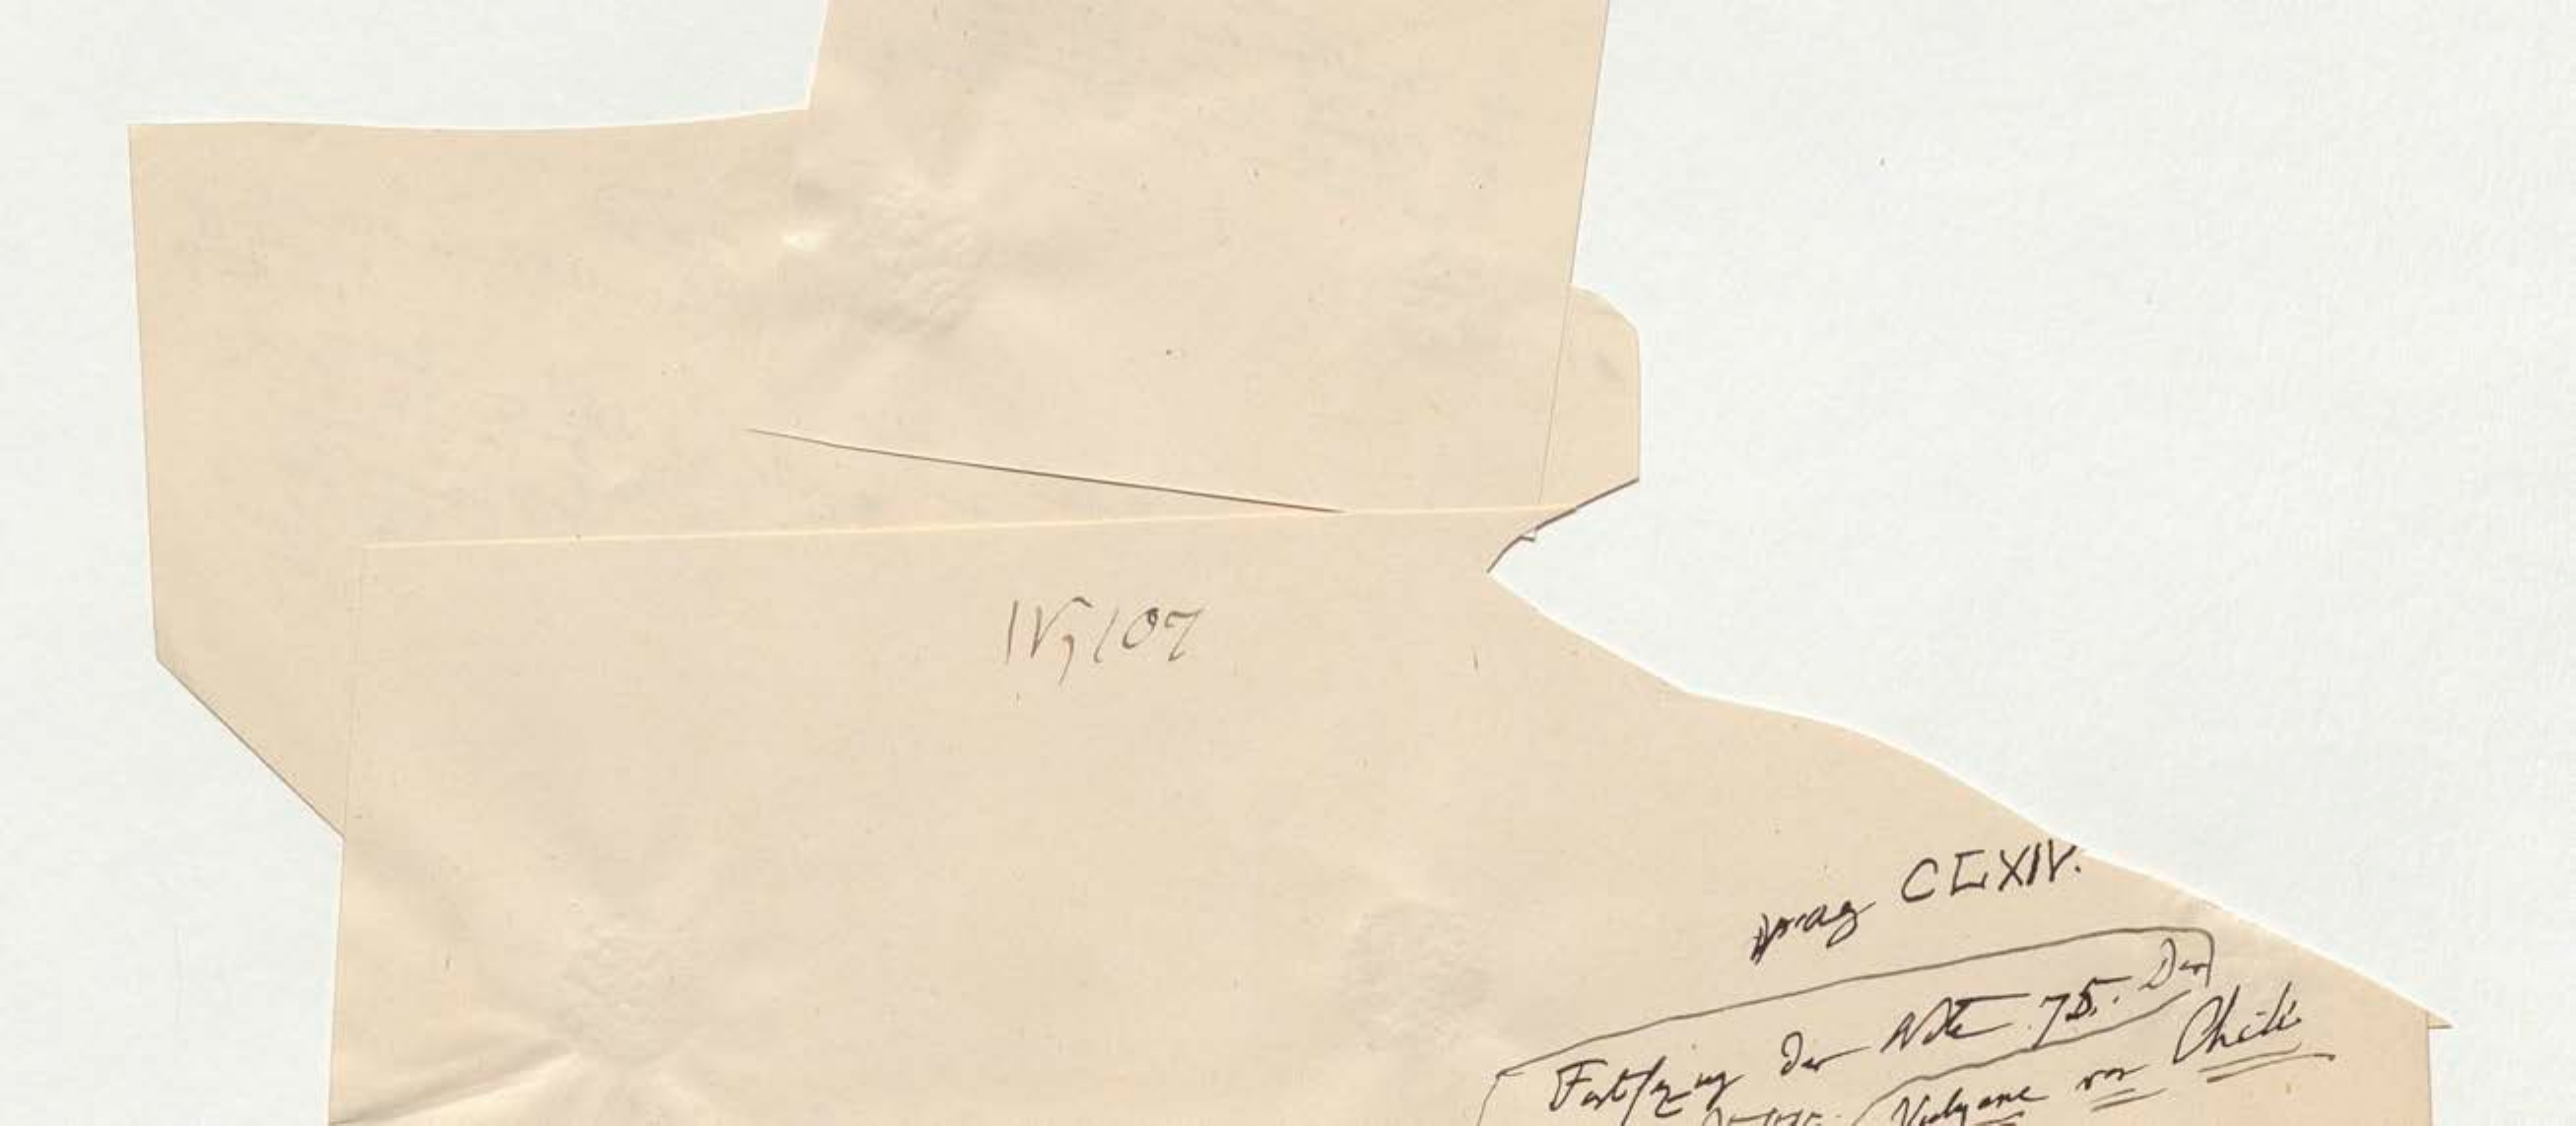 IV, 107
CLXIV.
Fortsezung der Note 75. Der
Vulkane von Chili